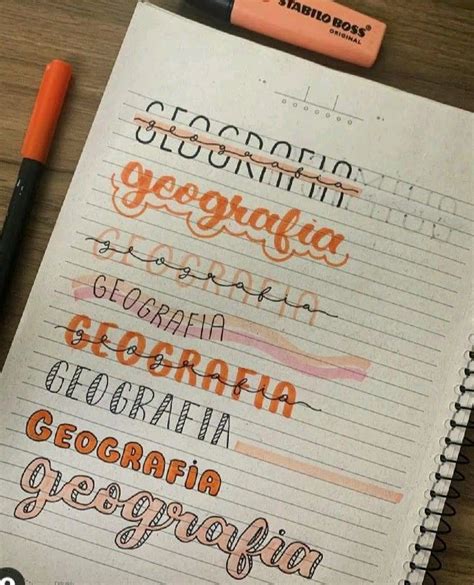 STABILO BOSS
ORIGINAL
GEOGRAFIA
geografia
geografia
GEOGRAFIA
geografia
GEOGRAFIA
GEOGRAFIA
geografia
GEOGRAFIA
GEOGRAFiA
geografia